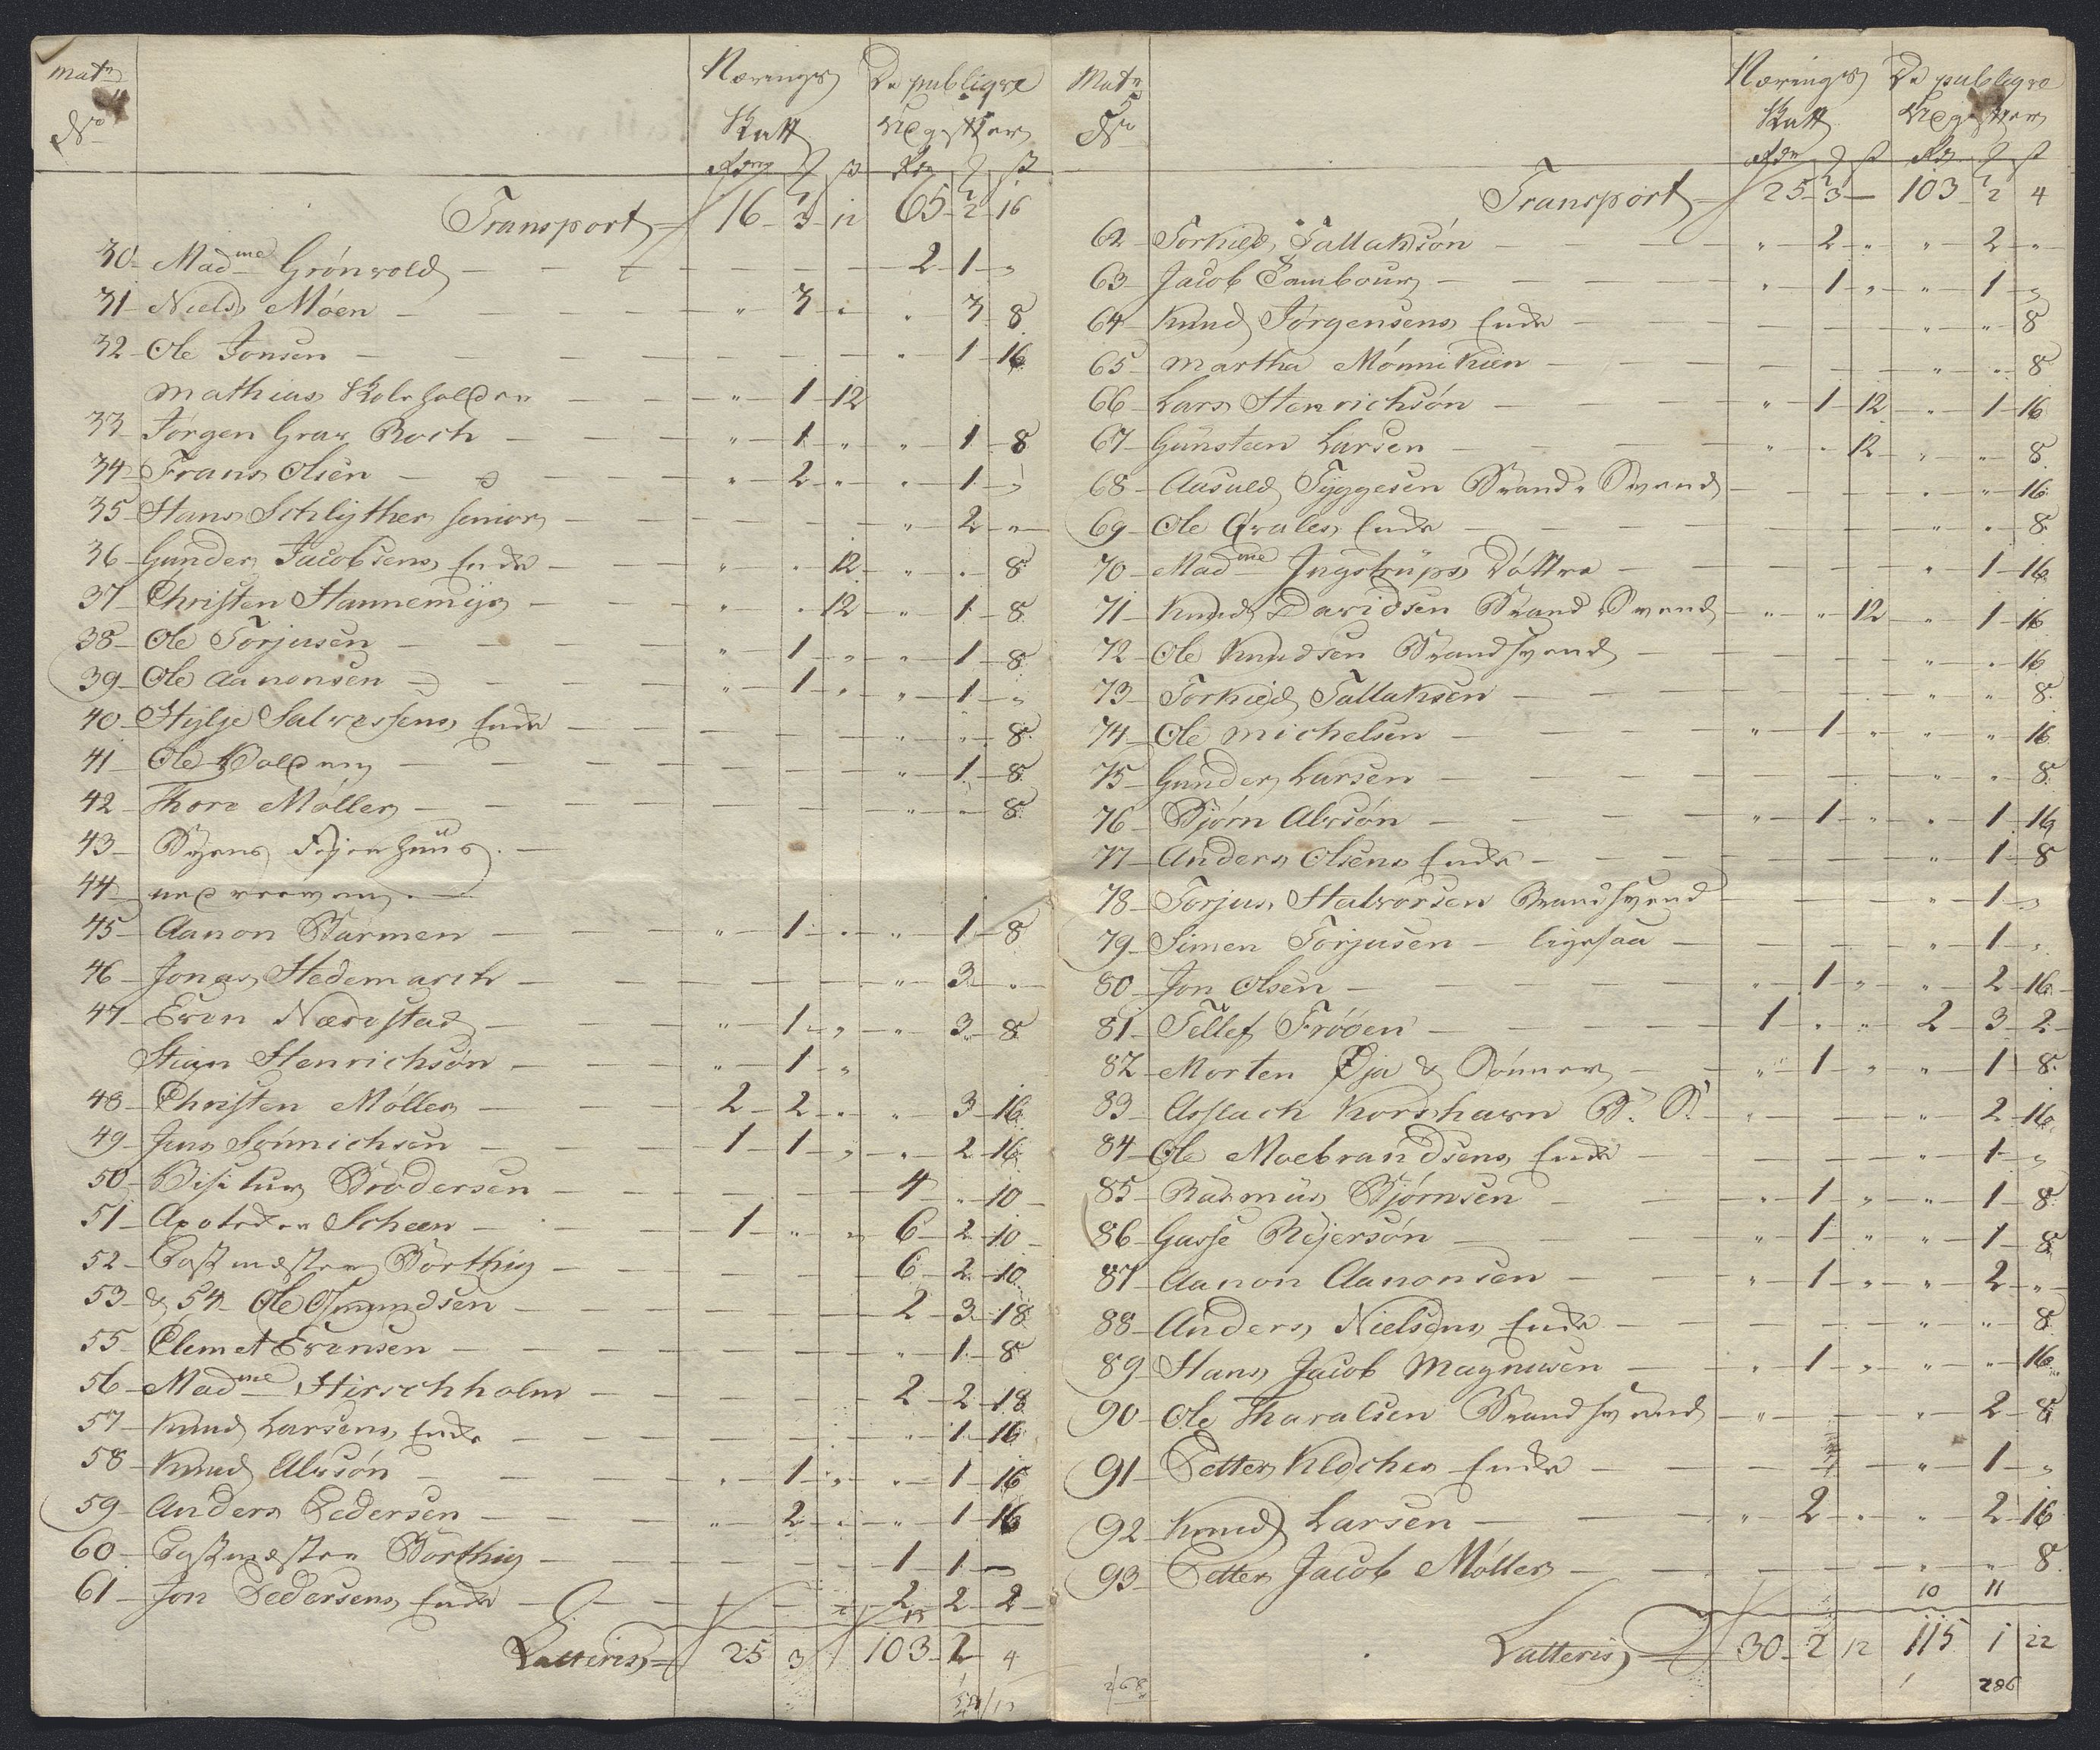 Matr No
Nærings Skatt
De publiqve Utgifter
Transport 16 3 12 65 2 16
30 Madme Grónwold 2 1 "
31 Niels Móen " 3 " " 3 8
32 Ole Jonsen " 1 16
Mathias Kolshollen " 1 12
33 Jørgen Graw Roch " 1 " " 1 8
34 Frans Olsen " 2 " " 1 "
35 Hans Schlÿther senior " 2 "
36 Gunder Jacobsens Enke " " 12 " " 8
37 Christen Hannemÿr " " 12 " 1 8
38 Ole Torjusen " 1 " " 1 8
39 Ole Aanonsen " 1 " " 1 "
40 Hylje Salvesens Enke " " 8
41 Ole " 1 8
42 Thore Møller " " 8
43 Byens Sprøjtehuus
44 
45 Aanon Barmen " 1 " " 1 8
46 Jonas Hedemarck " 3 "
47 Even Nærestad " 1 " " 3 8
Stian Henrichsón " 1 "
48 Christen Móller 2 2 " " 3 16
49 Jens Sónnichsen 1 1 " " 2 16
50 Visitør Brodersen 4 " 10
51 Apoteker Scheen 1 " " 6 2 10
52 Postmester Börthig 6 2 10
53 & 54 Ole Osmundsen 2 3 18
55 Clemet Evensen " 1 8
56 Madme Hirschholm 2 2 18
57 Knud Larsens Enke " 1 16
58 Knud Alvsón " 1 " " 1 16
59 Anders Pedersen " 2 " " 1 16
60 Postmester Börthig 1 1 "
61 Jon Pedersens Enke 2 2 2
Latteris 25 3 103 2 4
Matr No
Nærings Skatt
De publiqve Utgifter
Transport 25 3 103 2 4
62 Torkild Tallaksón " 2 " " 2 "
63 Jacob Tambour " 1 " " 1 "
64 Knud Jørgensens Enke " " 8
65 Martha Mónnikien " " 8
66 Lars Henrichsón " 1 12 " 1 16
67 Gunsteen Larsen " " 12 " " 8
68 Aasuld Tÿggesen Brand Svend " " 16
69 Ole Qvales Enke " " 8
70 Madme Jngstrüps Dóttre " 1 16
71 Knud Davidsen Brand Svend " " 12 " 1 16
72 Ole Knudsen Brandsvend " " 16
73 Torkield Tallaksen " " 8
74 Ole Michelsen " 1 " " " 16
75 Gunder Larsen " " 8
76 Bjørn Alvsón " 1 " " 1 16
77 Anders Olsens Enke " 1 8
78 Torjus Halvorsen Brandsvend " 1 "
79 Simen Torjusen ligesaa " 1 "
80 Jon Olsen " 1 " " 2 16
81 Tellef Fróöen 1 " " 2 3 2
82 Morten Øja & Sónner " 1 " " 1 8
83 Asslach Korshavn B: S: " " 2 16
84 Ole Moebrandsens Enke " 1 "
85 Rasmüs Bjórnsen " 1 " " 1 8
86 Gusse Rejersón " 1 " " 1 8
87 Aanon Aanonsen " 1 " " 2 "
88 Anders Nielsens Enke " " 8
89 Hans Jacob Magnusen " 1 " " " 16
90 Ole Tharalsen Brandsvend " " 2 8
91 Petter Klochers Enke " 1 "
92 Knud Larsen " 2 " " 2 16
93 Petter Jacob Móller " " 8
10 11
Latteris 30 2 12 115 1 22
286